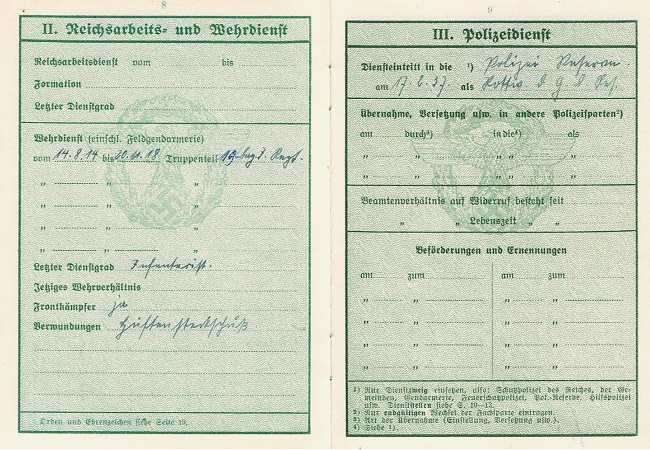 8
II. Reichsarbeits- und Wehrdienst
Reichsarbeitsdienst vom bis
Formation
Letzter Dienstgrad
Wehrdienst (einschl. Feldgendarmerie)
vom 14.8.14 bis 20.11.18 Truppenteil 19. bay. I. Regt.
" " "
" " "
" " "
" " "
Letzter Dienstgrad Infanterist.
Jetziges Wehrverhältnis
Frontkämpfer ja
Verwundungen Hüftensteckschuß.
Orden und Ehrenzeichen siehe Seite 19.
9
III. Polizeidienst
Diensteintritt in die ¹) Polizei Reserve
am als
Übernahme, Versetzung usw. in andere Polizeisparten²)
am durch³) in die¹) als
" " " " "
" " " " "
Beamtenverhältnis auf Widerruf besteht seit
" " Lebenszeit " "
Beförderungen und Ernennungen
am zum am zum
" " " "
" " " "
" " " "
" " " "
¹) Nur Dienstzweig einsetzen, also: Schutzpolizei des Reiches, der Ge-
meinden, Gendarmerie, Feuerschutzpolizei, Pol.-Reserve, Hilfspolizei
usw. Dienststellen siehe S. 10–13.
²) Nur endgültigen Wechsel der Fachsparte eintragen.
³) Art der Übernahme (Einstellung, Versetzung usw.).
⁴) Siehe ¹).